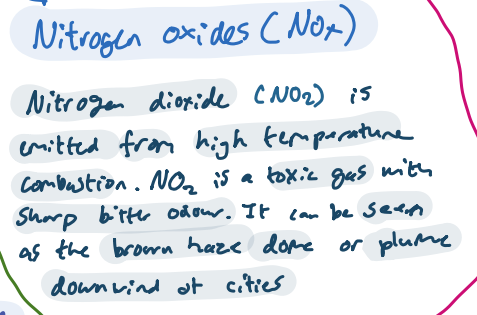 Nitrogen oxides (NOx)
Nitrogen dioxide (NO2) is
emitted from high temperature
combustion. NO2 is a toxic gas with
sharp bitter odour. It can be seen
as the brown haze dome or plume
downwind of cities